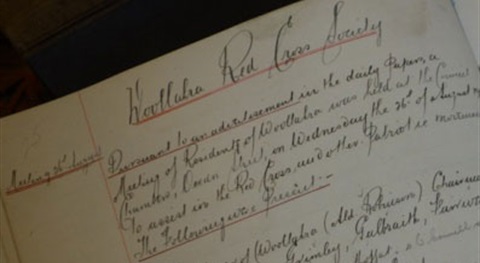 Woollahra Red Cross Society
Meeting 26th August
Pursuant to an advertisement in the daily Papers, a
Meeting of Residents of Woollahra was held at the Council
Chambers, Ocean Street, on Wednesday the 26th of August
To assist in the Red Cross, and other Patriotic movements
The Following were Present:-
of Woollahra (Ald Robinson) Chairman
Grimley, Galbraith,
Moffat,